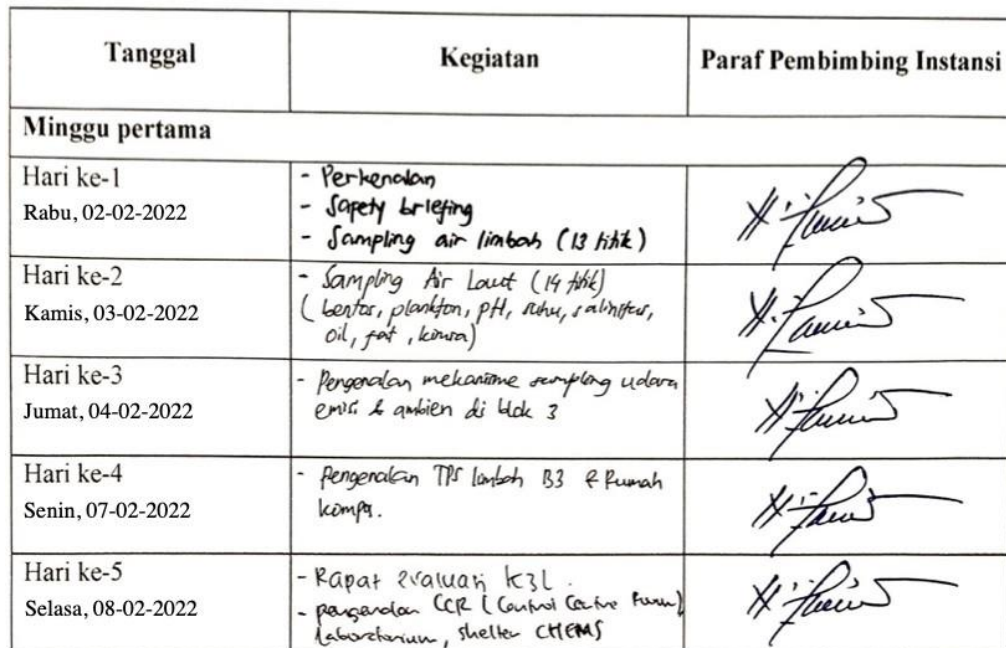 Tanggal
Kegiatan
Paraf Pembimbing Instansi
Minggu pertama
Hari ke-1
Rabu, 02-02-2022
- Perkenalan
- Safety briefing
- Sampling air limbah (13 titik)
Hari ke-2
Kamis, 03-02-2022
- Sampling Air Laut (14 titik)
(bentos, plankton, pH, suhu, salinitas,
oil, fat, kimia)
Hari ke-3
Jumat, 04-02-2022
- Pengenalan mekanisme sampling udara
emisi & ambien di blok 3
Hari ke-4
Senin, 07-02-2022
- Pengenalan TPS limbah B3 & Rumah
kompos.
Hari ke-5
Selasa, 08-02-2022
- Rapat evaluasi K3L.
- pengenalan CCR (Control Centre Room)
laboratorium, shelter CHEMS